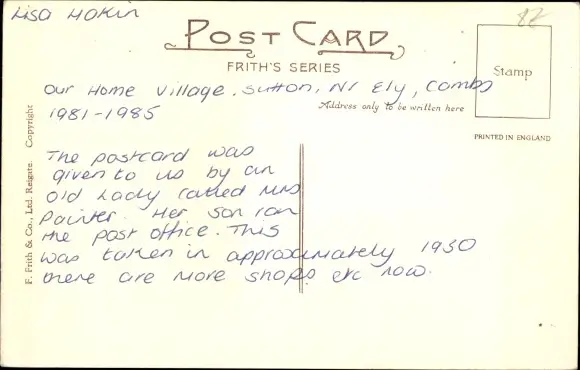 Lisa Hokin
POST CARD
FRITH'S SERIES
Stamp
Our Home Village. Sutton, Nr Ely, Cambs
Address only to be written here
1981-1985
PRINTED IN ENGLAND
F. Frith & Co., Ltd. Reigate. Copyright
The postcard was
given to us by an
old Lady called Mrs
Painter. Her son ran
the post office. This
was taken in approximately 1930
there are more shops etc now.